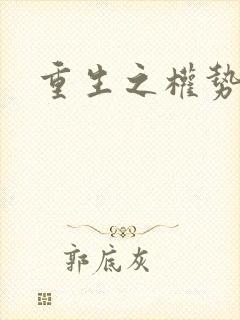 重生之權勢
郭底灰